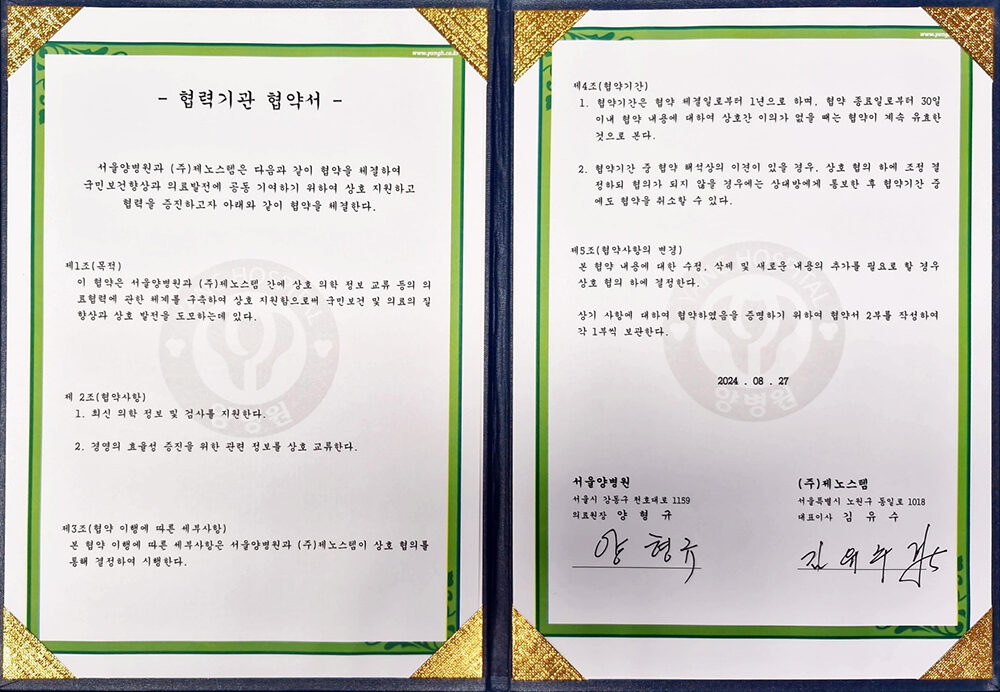 www.yangh.co.kr
- 협력기관 협약서 -
서울양병원과 (주)제노스템은 다음과 같이 협약을 체결하여
국민보건향상과 의료발전에 공동 기여하기 위하여 상호 지원하고
협력을 증진하고자 아래와 같이 협약을 체결한다.
제1조(목적)
이 협약은 서울양병원과 (주)제노스템 간에 상호 의학 정보 교류 등의 의
료협력에 관한 체계를 구축하여 상호 지원함으로써 국민보건 및 의료의 질
향상과 상호 발전을 도모하는데 있다.
양병원
제 2조(협약사항)
1. 최신 의학 정보 및 검사를 지원한다.
2. 경영의 효율성 증진을 위한 관련 정보를 상호 교류한다.
제3조(협약 이행에 따른 세부사항)
본 협약 이행에 따른 세부사항은 서울양병원과 (주)제노스템이 상호 협의를
통해 결정하여 시행한다.
제4조(협약기간)
1. 협약기간은 협약 체결일로부터 1년으로 하며, 협약 종료일로부터 30일
이내 협약 내용에 대하여 상호간 이의가 없을 때는 협약이 계속 유효한
것으로 본다.
2. 협약기간 중 협약 해석상의 이견이 있을 경우, 상호 협의 하에 조정 결
정하되 협의가 되지 않을 경우에는 상대방에게 통보한 후 협약기간 중
에도 협약을 취소할 수 있다.
제5조(협약사항의 변경)
본 협약 내용에 대한 수정, 삭제 및 새로운 내용의 추가를 필요로 할 경우
상호 협의 하에 결정한다.
상기 사항에 대하여 협약하였음을 증명하기 위하여 협약서 2부를 작성하여
각 1부씩 보관한다.
2024 . 08 . 27
양병원
서울양병원
서울시 강동구 천호대로 1159
의료원장 양 형 규
양 형 규
(주)제노스템
서울특별시 노원구 동일로 1018
대표이사 김 유 수
김 유 수